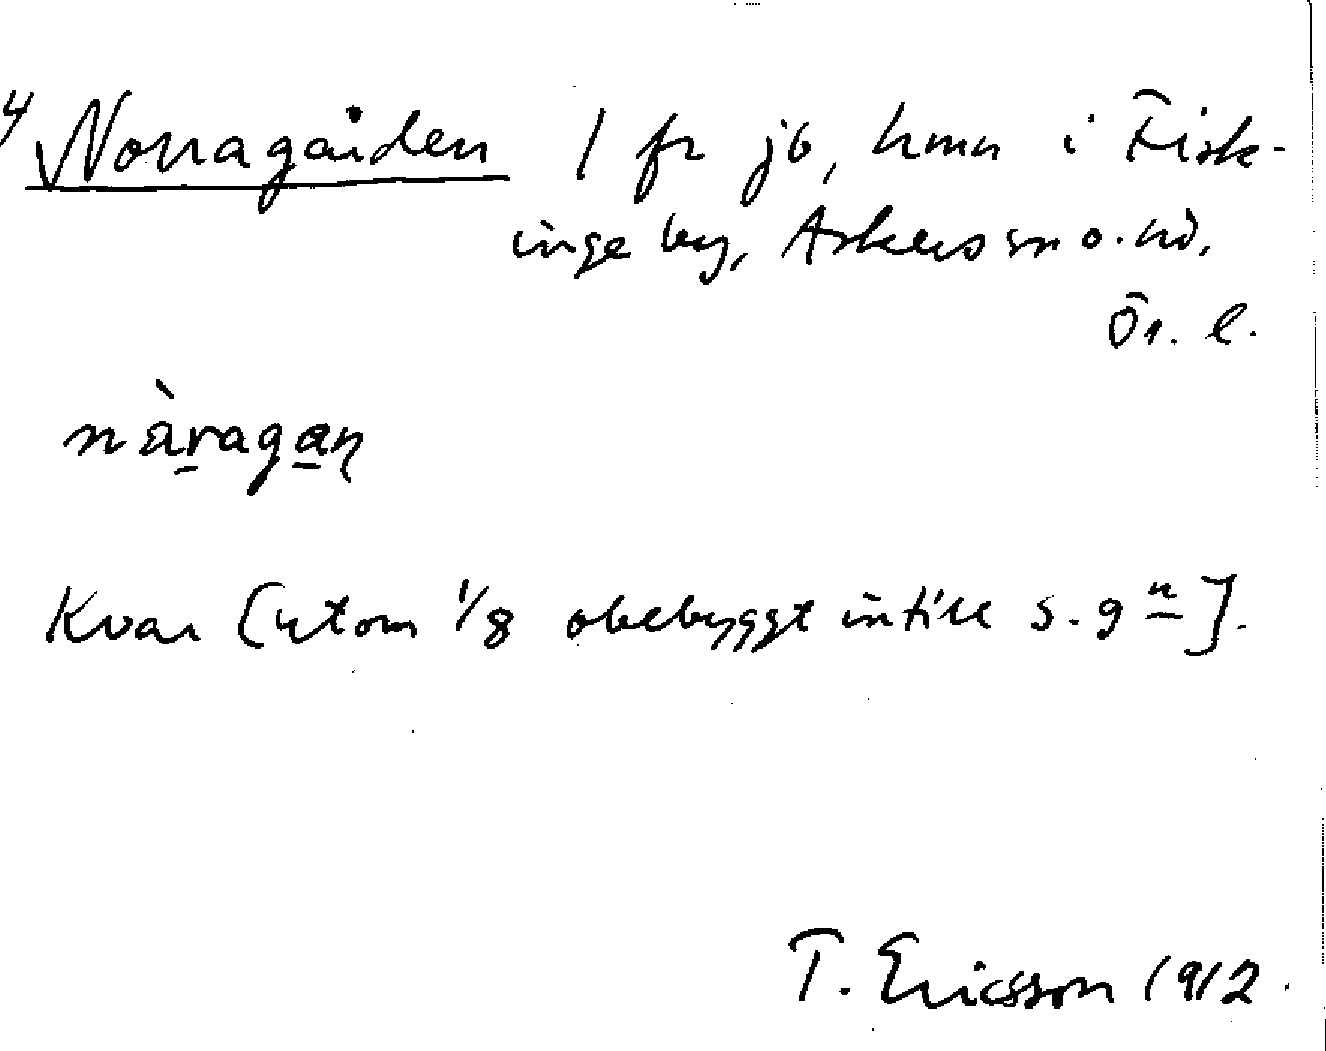 4 Norragården 1 fr jb, hmn i Fisk-
inge by, Askers sn o. hd,
Ör. l.
nàragaṇ
Kvar [utom 1/8 obebyggt intill s. gn].
T. Ericsson 1912.